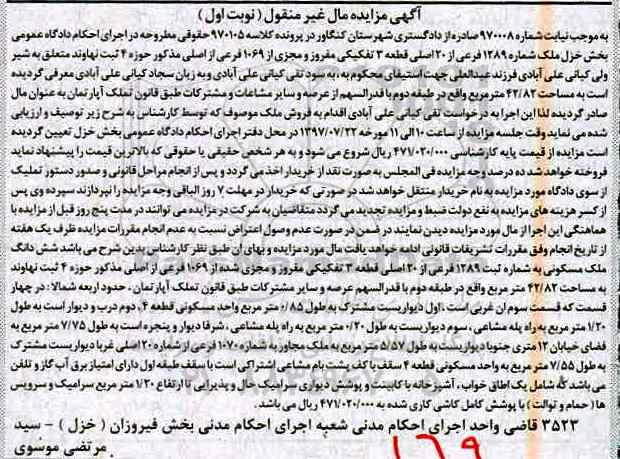 آگهی مزایده مال غیر منقول (نوبت اول)
به موجب نیابت شماره ۹۷۰۰۰۸ صادره از دادگستری شهرستان کنگاور در پرونده کلاسه ۹۷۰۱۰۵ حقوقی مطروحه در اجرای احکام دادگاه عمومی
بخش خزل ملک شماره ۱۲۸۹ فرعی از ۲۰ اصلی قطعه ۳ تفکیکی مفروز و مجزی از ۱۰۶۹ فرعی از اصلی مذکور حوزه ۴ ثبت نهاوند متعلق به شیر
ولی کیانی علی آبادی فرزند عبدالعلی جهت استیفای محکوم به، به سود تقی کیانی علی آبادی و به زیان سجاد کیانی علی آبادی معرفی گردیده
است به مساحت ۴۲/۸۲ متر مربع واقع در طبقه دوم با قدرالسهم از عرصه و سایر مشاعات و مشترکات طبق قانون تملک آپارتمان به عنوان مال
صادر گردیده لذا این اجرا به درخواست تقی کیانی علی آبادی اقدام به فروش ملک موصوف که توسط کارشناس به شرح زیر توصیف و ارزیابی
شده می نماید وقت جلسه مزایده از ساعت ۱۰ الی ۱۱ مورخه ۱۳۹۷/۰۷/۲۲ در محل دفتر اجرای احکام دادگاه عمومی بخش خزل تعیین گردیده
است مزایده از قیمت پایه کارشناسی ۴۷۱/۰۲۰/۰۰۰ ریال شروع می شود و به هر شخص حقیقی یا حقوقی که بالاترین قیمت را پیشنهاد نماید
فروخته خواهد شد ده درصد وجه مزایده فی المجلس به صورت نقد از خریدار اخذ می گردد و پس از انجام مراحل قانونی و صدور دستور تملیک
از سوی دادگاه مورد مزایده به نام خریدار منتقل خواهد شد در صورتی که خریدار در مهلت ۷ روز الباقی وجه مزایده را نپردازند سپرده وی پس
از کسر هزینه های مزایده به نفع دولت ضبط و مزایده تجدید می گردد متقاضیان به شرکت در مزایده می توانند در مدت پنج روز قبل از مزایده با
هماهنگی این اجرا از مال مورد مزایده دیدن نمایند در ضمن در صورت عدم وصول اعتراض نسبت به عدم انجام مقررات مزایده ظرف یک هفته
از تاریخ انجام وفق مقررات تشریفات قانونی ادامه خواهد یافت مال مورد مزایده و بهای ان طبق نظر کارشناس بدین شرح می باشد شش دانگ
ملک مسکونی به شماره ثبت ۱۲۸۹ فرعی از ۲۰ اصلی قطعه ۳ تفکیکی مفروز و مجزی شده از ۱۰۶۹ فرعی از اصلی مذکور حوزه ۴ ثبت نهاوند
به مساحت ۴۲/۸۲ متر مربع واقع در طبقه دوم با قدرالسهم عرصه و سایر مشترکات طبق قانون تملک آپارتمان. حدود اربعه شمالا: در چهار
قسمت که قسمت سوم ان غربی است، اول دیواریست مشترک به طول ۰/۸۵ متر مربع واحد مسکونی قطعه ۴، دوم درب و دیوار است به طول
۱/۲۰ متر مربع به راه پله مشاعی، سوم دیواریست به طول ۰/۲۰ متر مربع به راه پله مشاعی، شرقا دیوار و پنجره است به طول ۷/۷۵ متر مربع به
فضای خیابان ۱۲ متری جنوبا دیواریست به طول ۵/۵۷ متر مربع به ملک مجاور به شماره ۱۰۷۰ فرعی از شماره ۲۰ اصلی غربا دیواریست مشترک
به طول ۷/۵۵ متر مربع به واحد مسکونی قطعه ۴ سقف با کف پشت بام مشاعی اشتراکی است با سقف طبقه اول دارای امتیاز برق آب گاز و تلفن
می باشد که شامل یک اطاق خواب، آشپزخانه با کابینت و پوشش دیواری سرامیک حال و پذیرایی تا ارتفاع ۱/۲۰ متر مربع سرامیک و سرویس
ها (حمام و توالت) با پوشش کامل کاشی کاری شده به ۴۷۱/۰۲۰/۰۰۰ ریال می باشد.
۳۵۲۳ قاضی واحد اجرای احکام مدنی شعبه اجرای احکام مدنی بخش فیروزان (خزل) – سید
مرتضی موسوی
۱۶۹